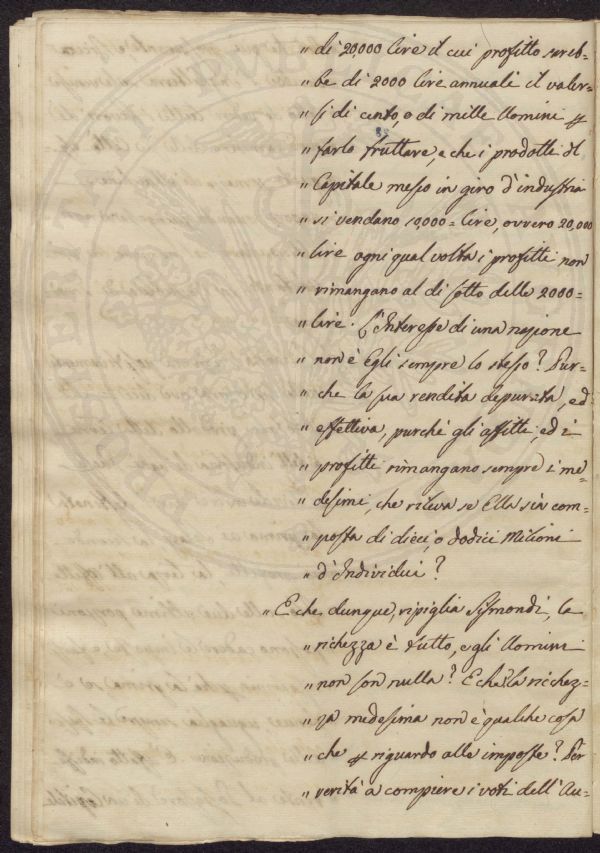 „ di 20,000 lire il cui profitto sareb-
„ be di 2000 lire annuali il valer-
„ si di cento, o di mille Uomini p
„ farlo fruttare, e che i prodotti dl
„ Capitale messo in giro d'industria
„ si vendano 10,000= lire, ovvero 20,000
„ lire ogni qual volta i profitti non
„ rimangano al di sotto delle 2000=
„ lire. L'Interesse di una nazione
„ non è Egli sempre lo stesso? Pur-
„ che la sua rendita depurata, ed
„ effettiva, purché gli affitti, ed i
„ profitti rimangano sempre i me-
„ desimi, che rileva se Ella sia com-
„ posta di dieci, o dodici Milioni
„ d'Individui?
„ E che dunque, ripiglia Sismondi, la
„ richezza è tutto, e gli Uomini
„ non son nulla? E che? la richez-
„ za medesima non è qualche cosa
„ che p riguardo alle imposte? Per
„ verità a compiere i voti dell'Au-